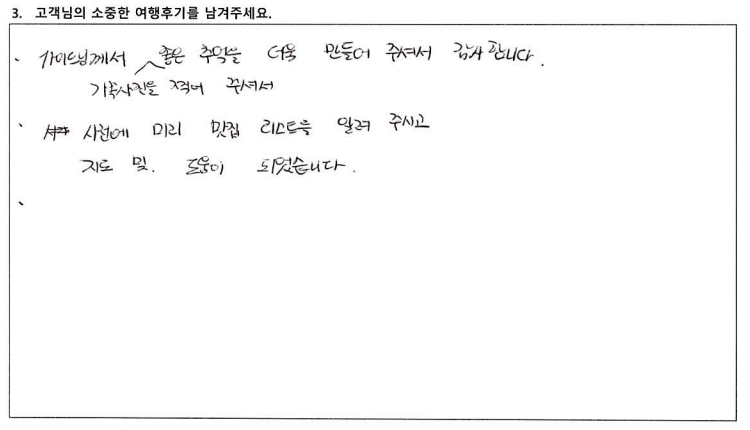 3. 고객님의 소중한 여행후기를 남겨주세요.
가이드님께서 좋은 추억을 더욱 만들어 주셔서 감사합니다.
가족사진을 찍어 주셔서
사전에 미리 맛집 리스트를 알려 주시고
지도 및. 도움이 되었습니다.